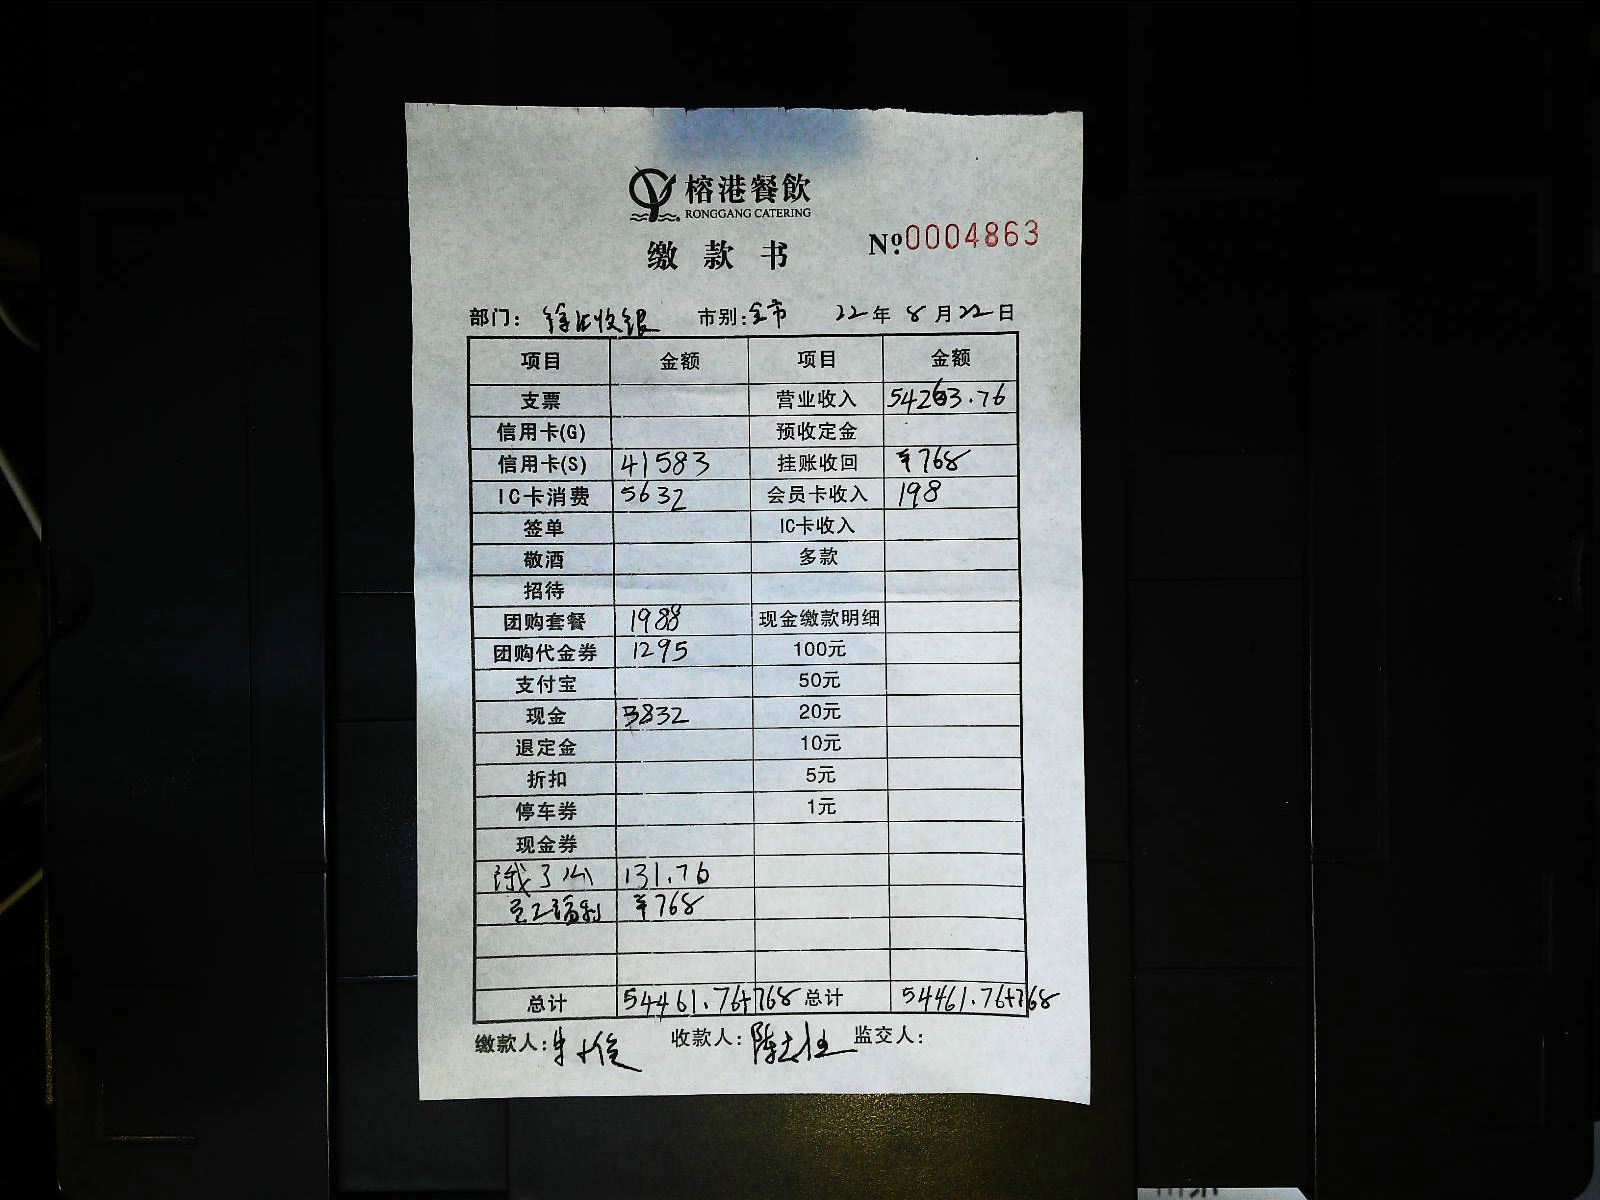 榕港餐飲
RONGGANG CATERING
缴款书
№0004863
部门：徐汇收银 市别：全市 22年8月22日
项目 金额 项目 金额
支票 营业收入 54263.76
信用卡(G) 预收定金
信用卡(S) 41583 挂账收回 ¥768
IC卡消费 5632 会员卡收入 198
签单 IC卡收入
敬酒 多款
招待
团购套餐 1988 现金缴款明细
团购代金券 1295 100元
支付宝 50元
现金 3832 20元
退定金 10元
折扣 5元
停车券 1元
现金券
饿了么 131.76
员工福利 ¥768
总计 54461.76+768 总计 54461.76+768
缴款人： 收款人： 监交人：